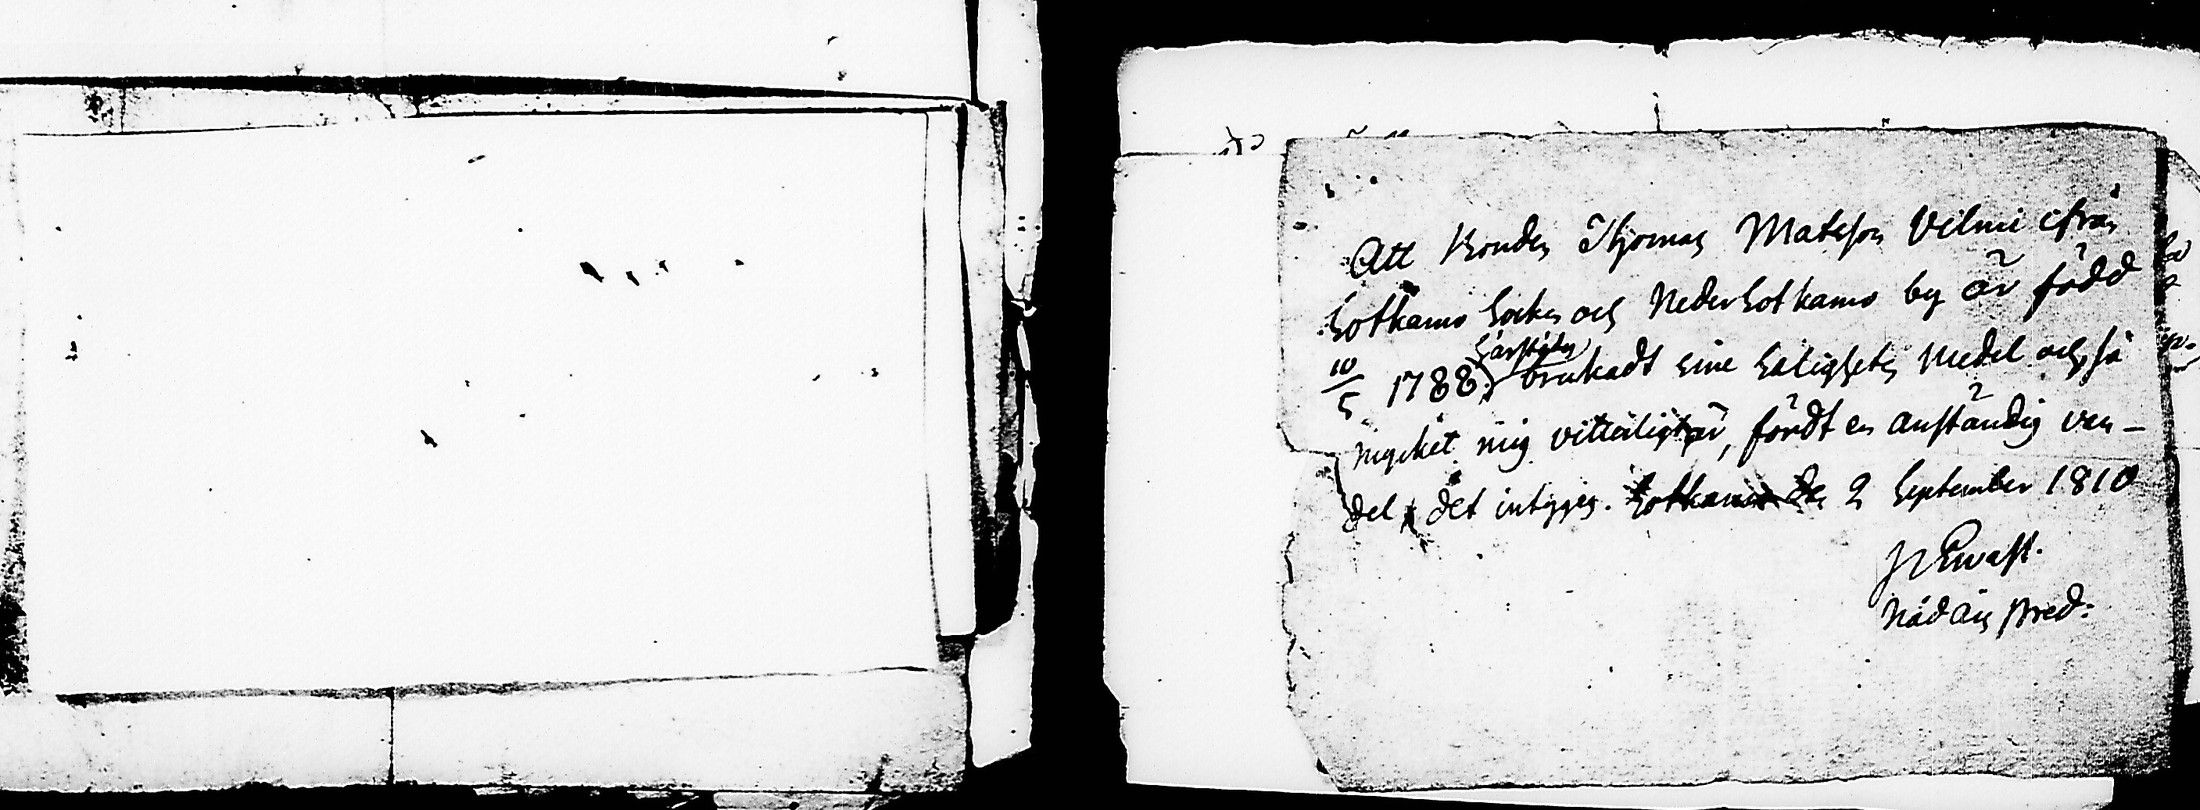 Att Bonden Thomas Matsson Vilmi ifrån
Sotkamo Socken och Nedersotkamo by är född
10/5 1788, särskilter brukadt sine Salighets medel och, så
mycket mig vitterligt är, fördt en anständig van-
del, det intygges. Sotkamo den 2 September 1810
J Ewast.
Nåd års Pred: